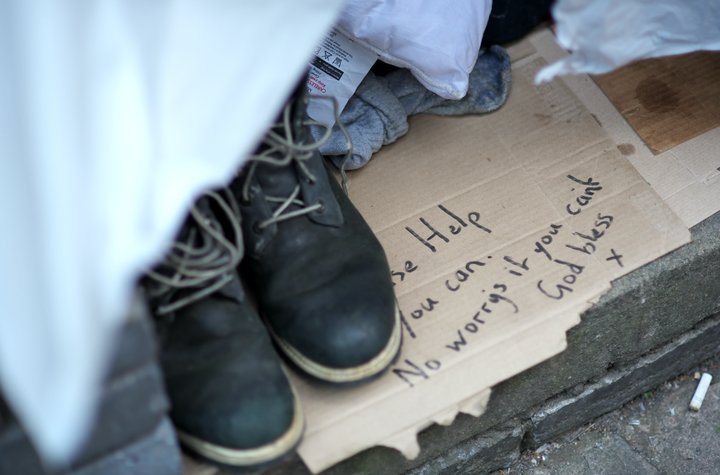 se Help
you can.
No worrys if you can't
God bless
x